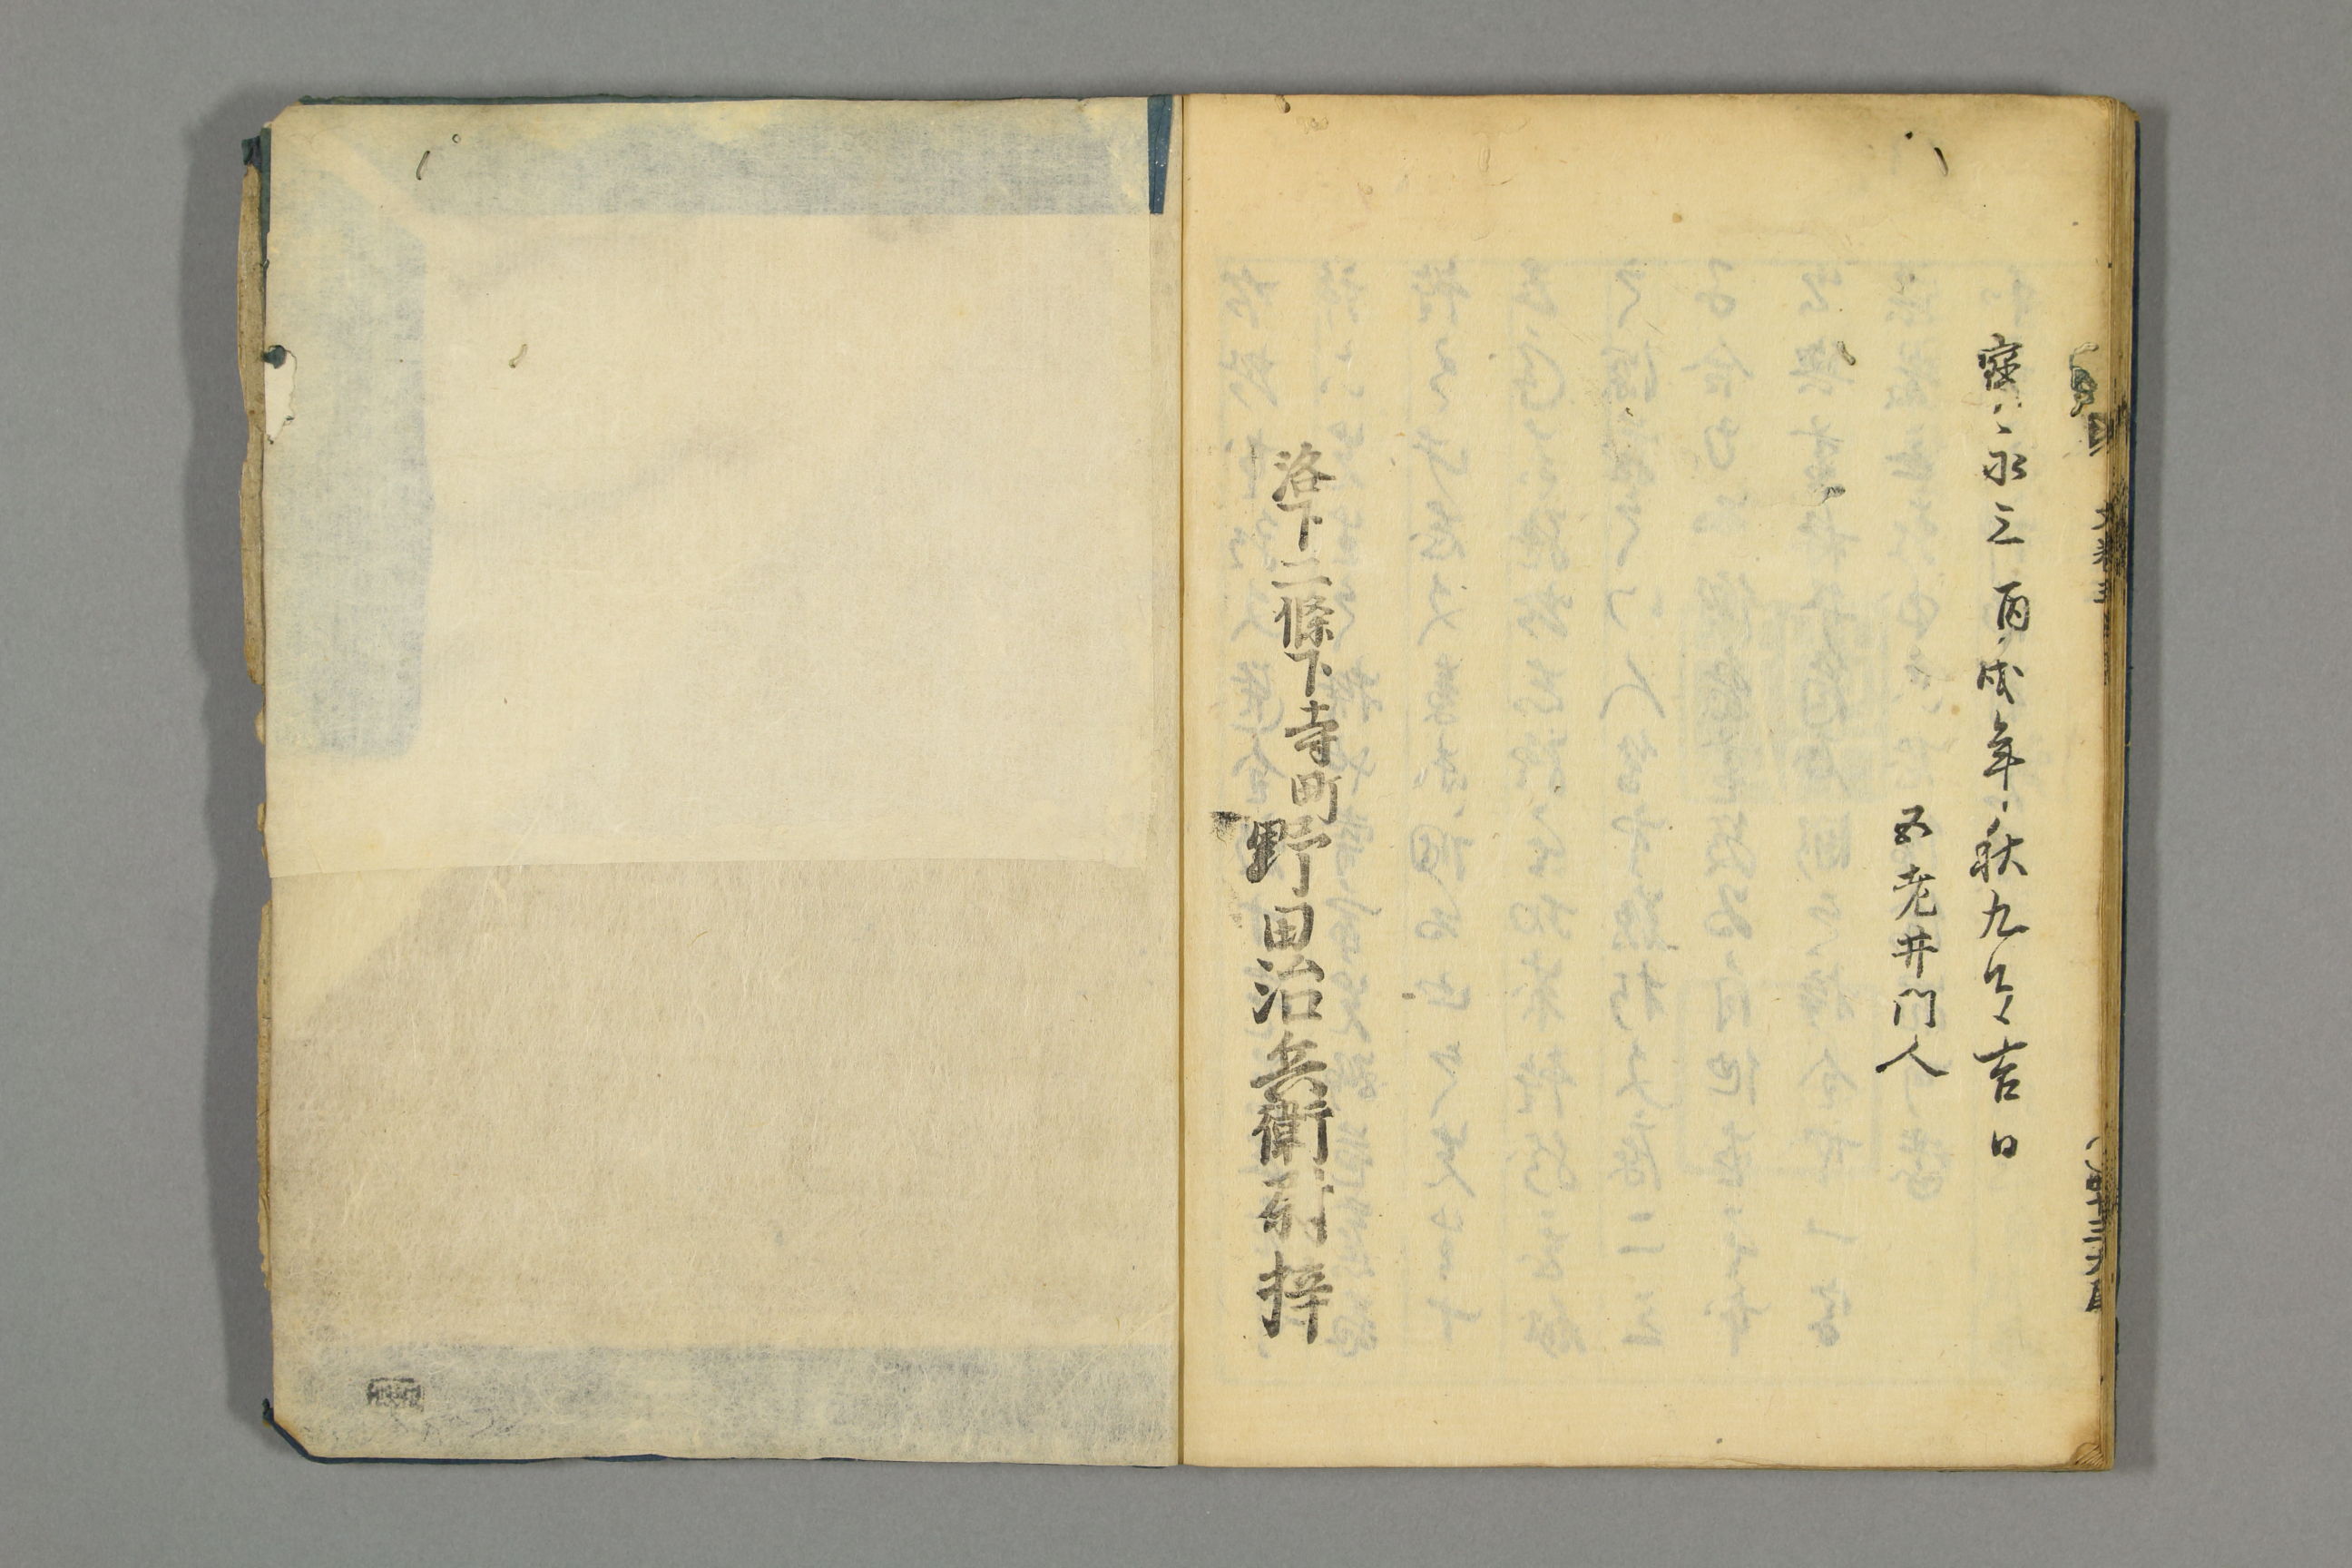 寳永三丙戌年秋九月吉日
五老井門人
洛下二條下寺町野田治兵衛刻梓